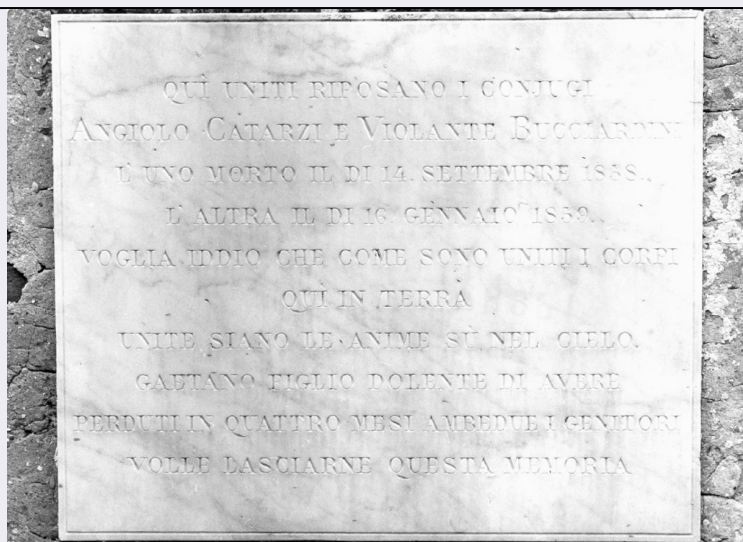 QUÌ UNITI RIPOSANO I CONJUGI
ANGIOLO CATARZI E VIOLANTE BUCCIARDINI
L'UNO MORTO IL DI 14. SETTEMBRE 1858.
L'ALTRA IL DI 16 GENNAIO 1859.
VOGLIA IDDIO CHE COME SONO UNITI I CORPI
QUÌ IN TERRA
UNITE SIANO LE ANIME SÙ NEL CIELO.
GAETANO FIGLIO DOLENTE DI AVERE
PERDUTI IN QUATTRO MESI AMBEDUE I GENITORI
VOLLE LASCIARNE QUESTA MEMORIA